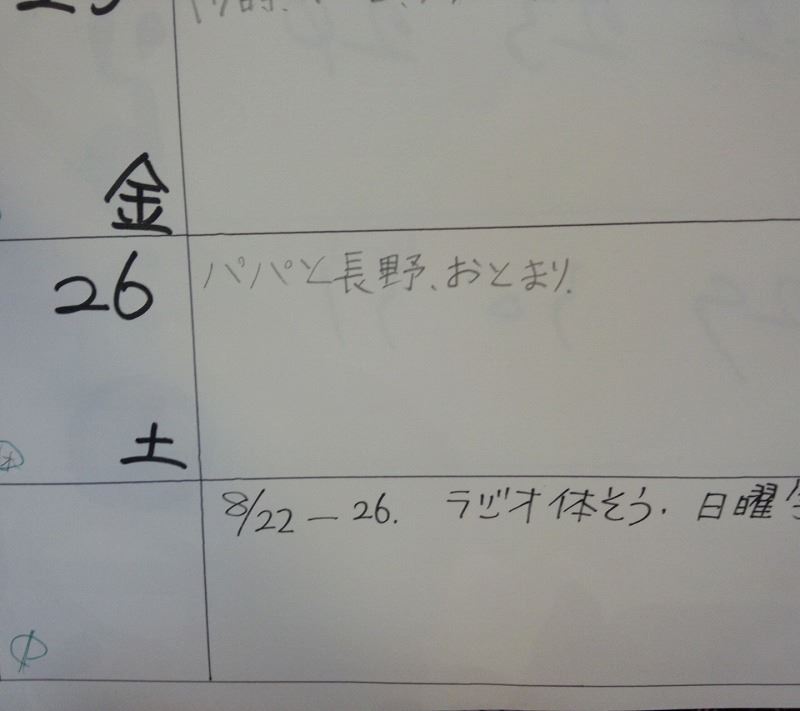 金
26
パパと長野、おとまり.
土
8/22 — 26. ラジオ体そう. 日曜